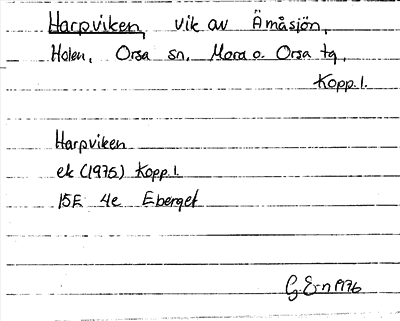 Harpviken, vik av Åmåsjön,
Holen, Orsa sn, Mora o. Orsa tg,
Kopp.l.
Harpviken
ek (1975) Kopp.l.
15E 4e Eberget
G. Ern 1976